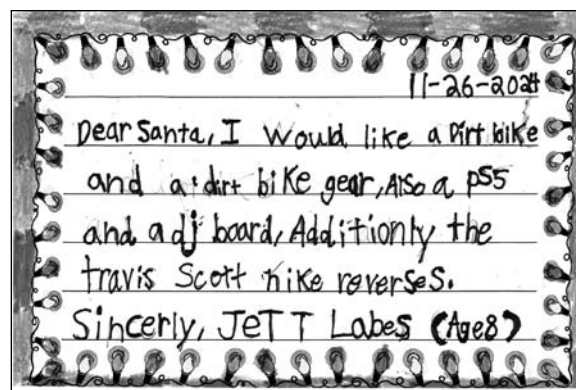 11-26-2024
Dear Santa, I Would like a Dirt bike
and a dirt bike gear, Also a ps5
and a dj board, Additionly the
travis Scott nike reverses.
Sincerly, JeTT Labes (Age8)